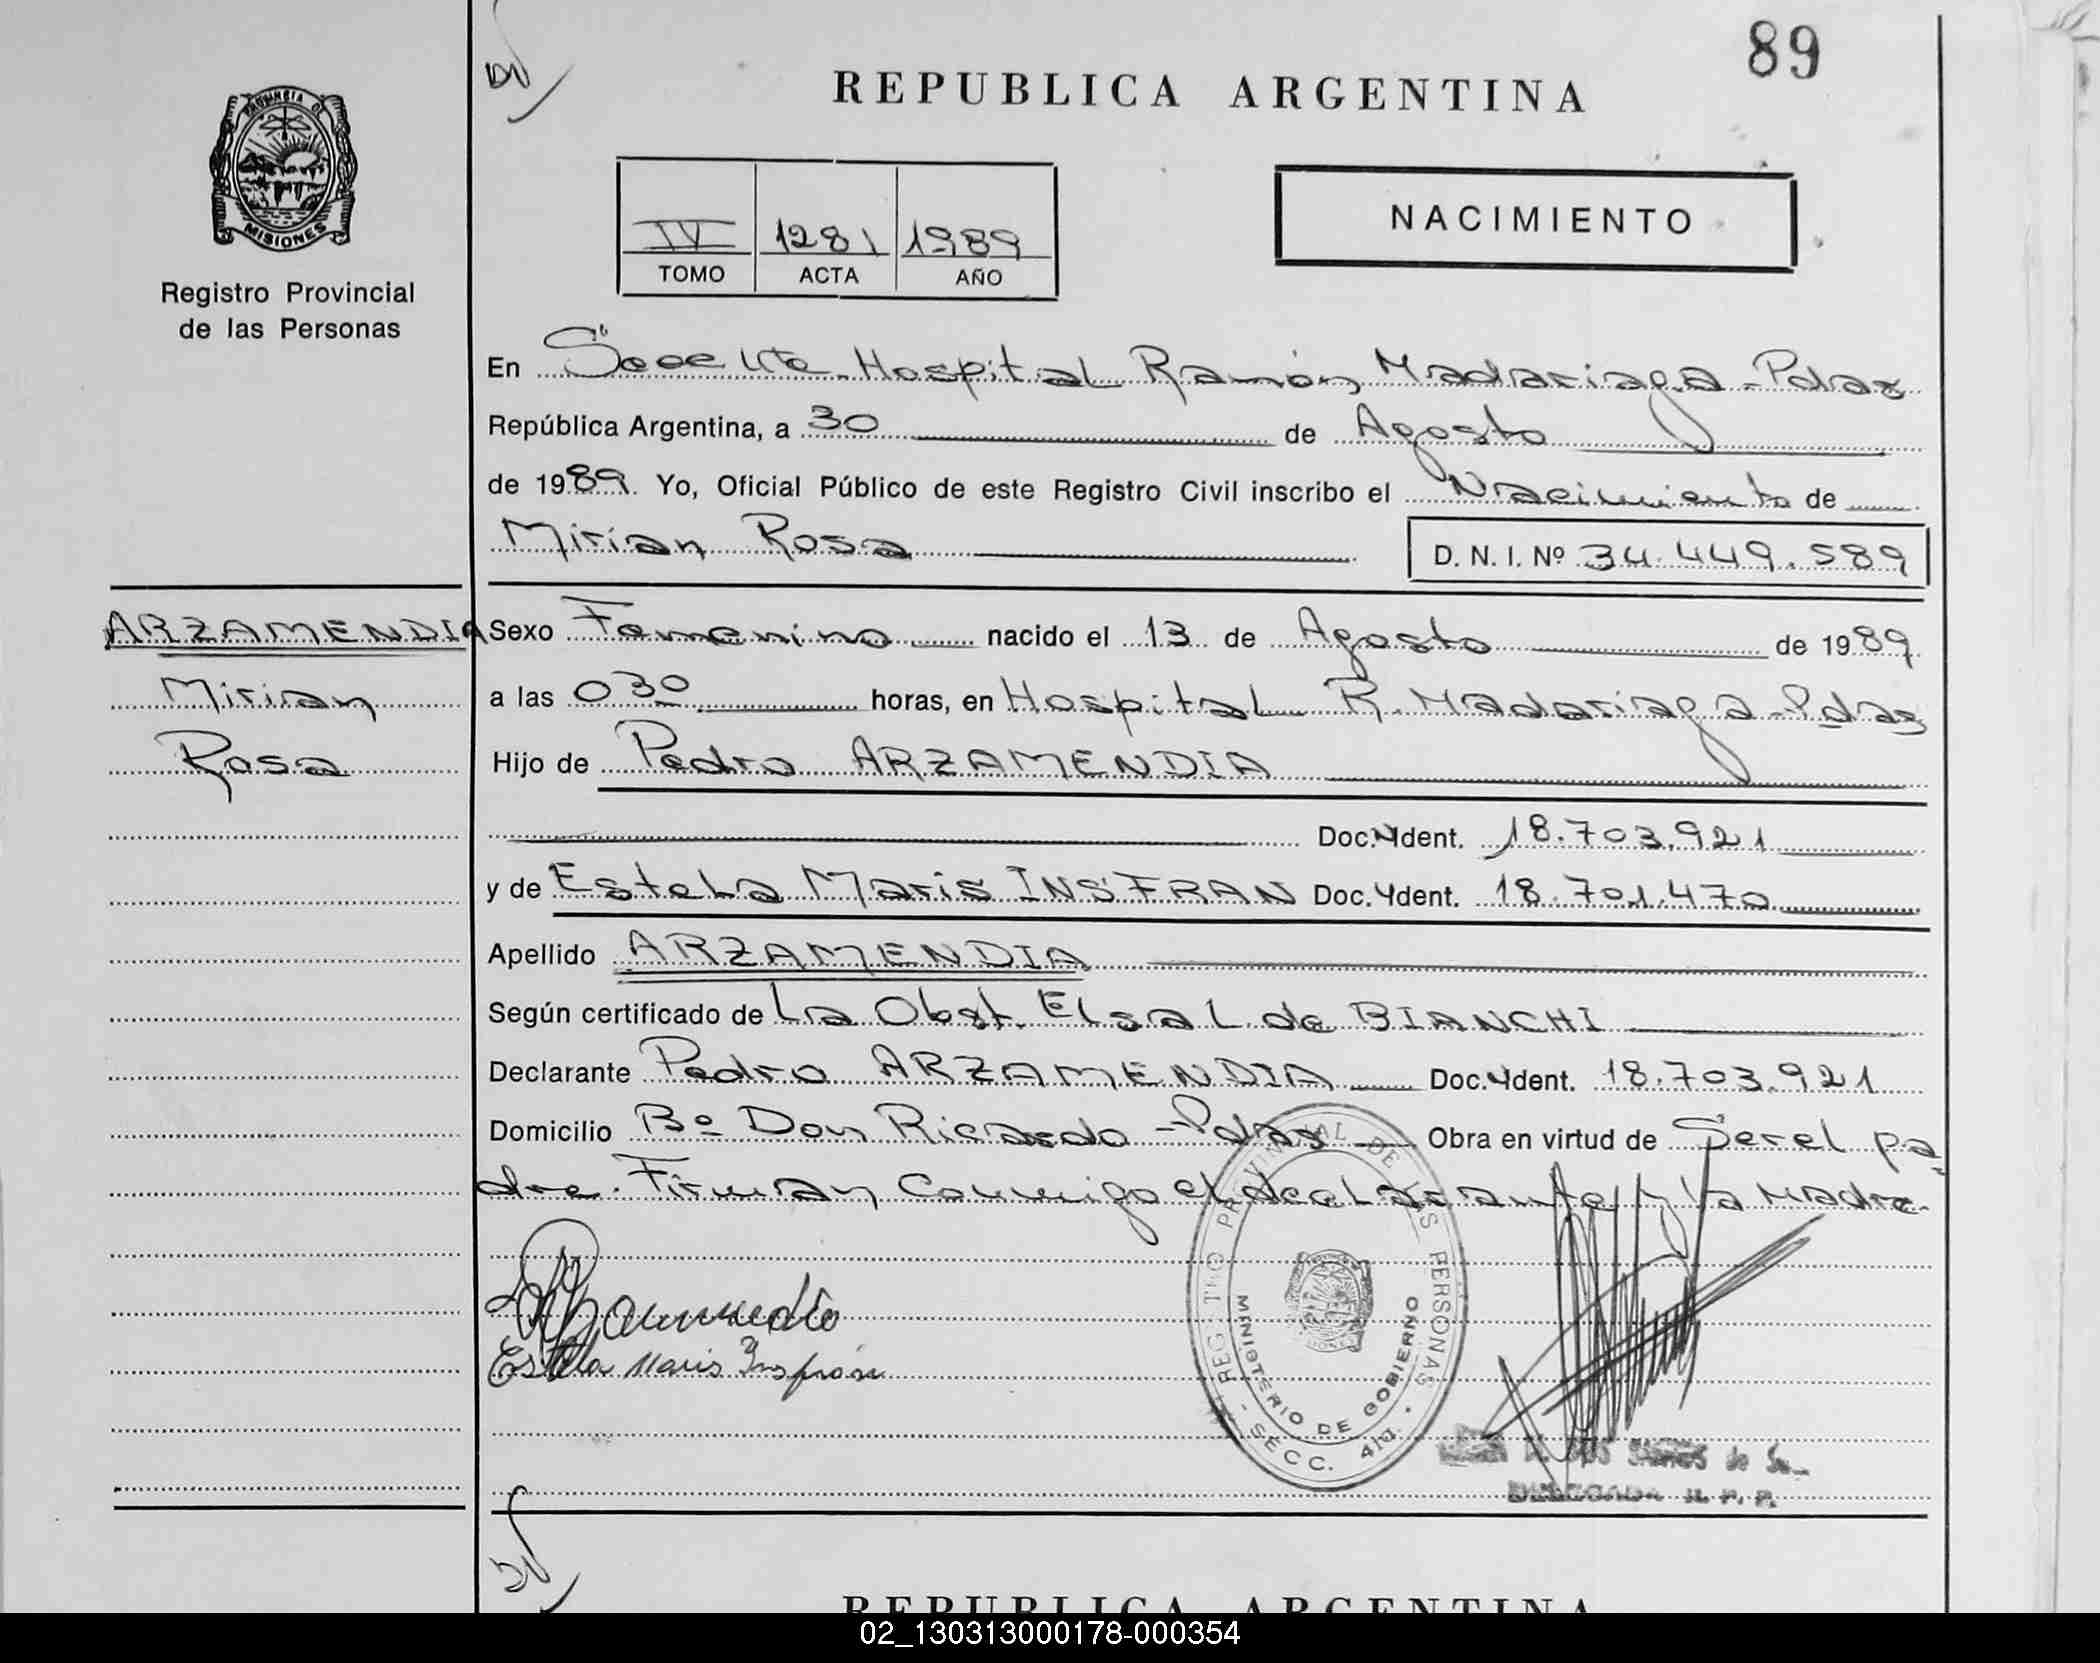 89
REPUBLICA ARGENTINA
PROVINCIA DE
MISIONES
Registro Provincial
de las Personas
IV 1281 1989
TOMO ACTA AÑO
NACIMIENTO
En Secc 4ta - Hospital Ramón Madariaga - Pdas
República Argentina, a 30 de Agosto
de 1989. Yo, Oficial Público de este Registro Civil inscribo el Nacimiento de
Mirian Rosa D. N. I. Nº 34.449.589
ARZAMENDIA
Mirian
Rosa
Sexo Femenino nacido el 13 de Agosto de 1989
a las 030 horas, en Hospital R. Madariaga - Pdas
Hijo de Pedro ARZAMENDIA
Doc. Ident. 18.703.921
y de Estela Maris INSFRAN Doc. Ident. 18.701.470
Apellido ARZAMENDIA
Según certificado de La Obst. Elsa L de BIANCHI
Declarante Pedro ARZAMENDIA Doc. Ident. 18.703.921
Domicilio Bº Don Ricardo - Pdas Obra en virtud de Ser el pa
dre. Firman Conmigo el declarante y la Madre.
Estela Maris Insfrán
REGISTRO PROVINCIAL DE LAS PERSONAS
MINISTERIO DE GOBIERNO
- SECC. 4ta -
DELEGADA R. P. P.
REPUBLICA ARGENTINA
02_130313000178-000354